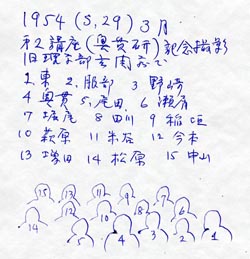 1954 (S,29) 3月
第2講座 (奥貫研) 記念撮影
旧理学部玄関前で
1, 東 2, 服部 3 野崎
4 奥貫 5, 尾田 6 瀬片
7 堀尾 8 田川 9 稲垣
10 萩原 11 朱居 12 今本
13 塚田 14 松原 15 中山
15 13 11 9 7
14 12 10 8 6
5 4 3 2 1